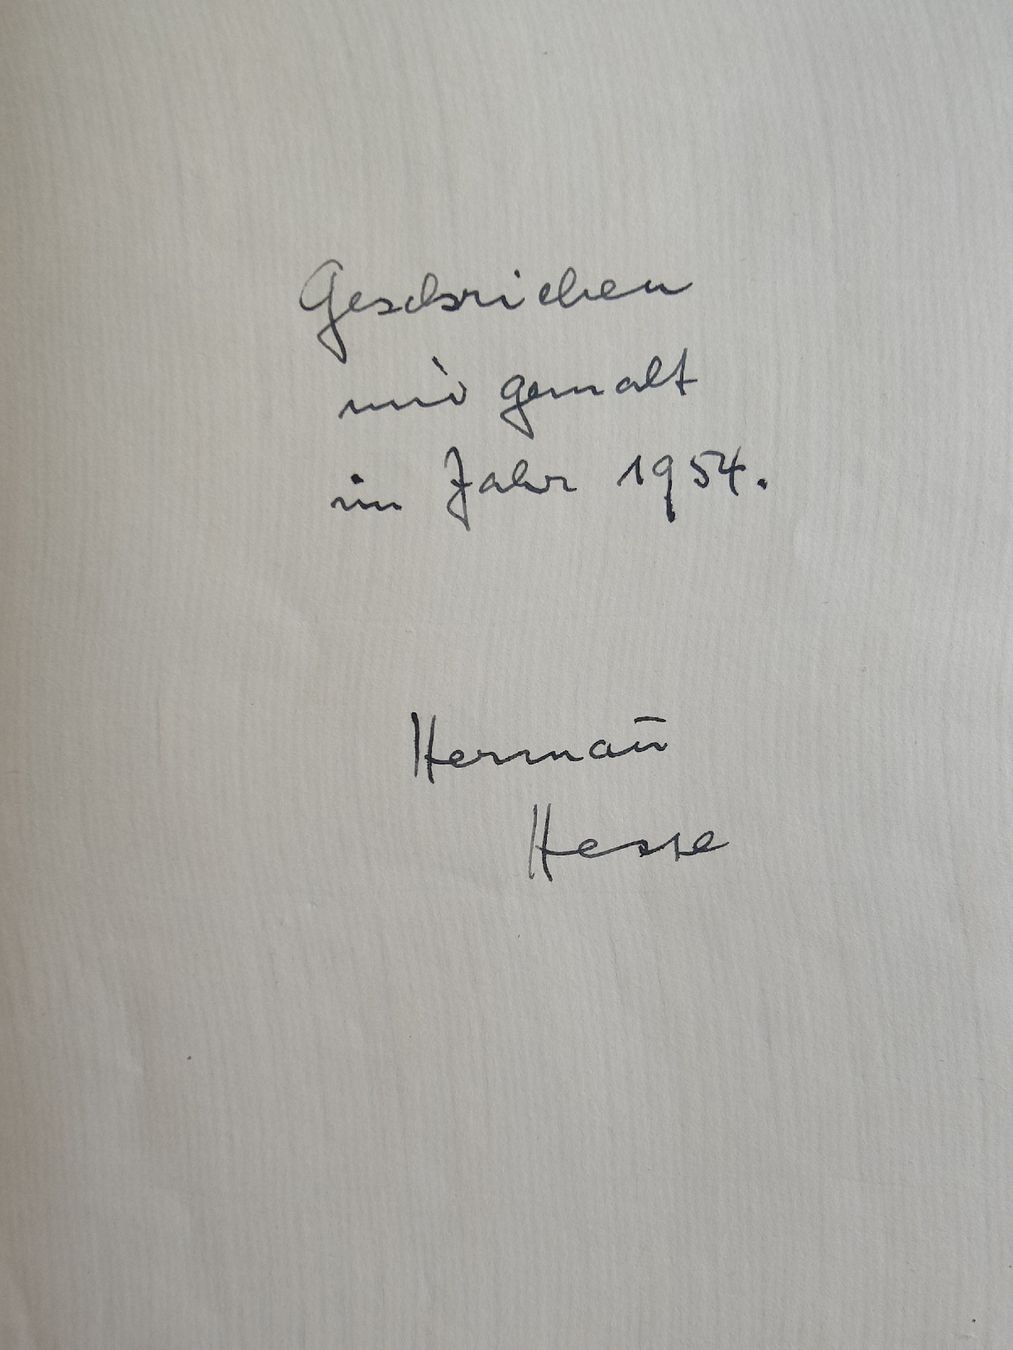 Geschrieben
und gemalt
im Jahr 1954.
Herman̄
Hesse